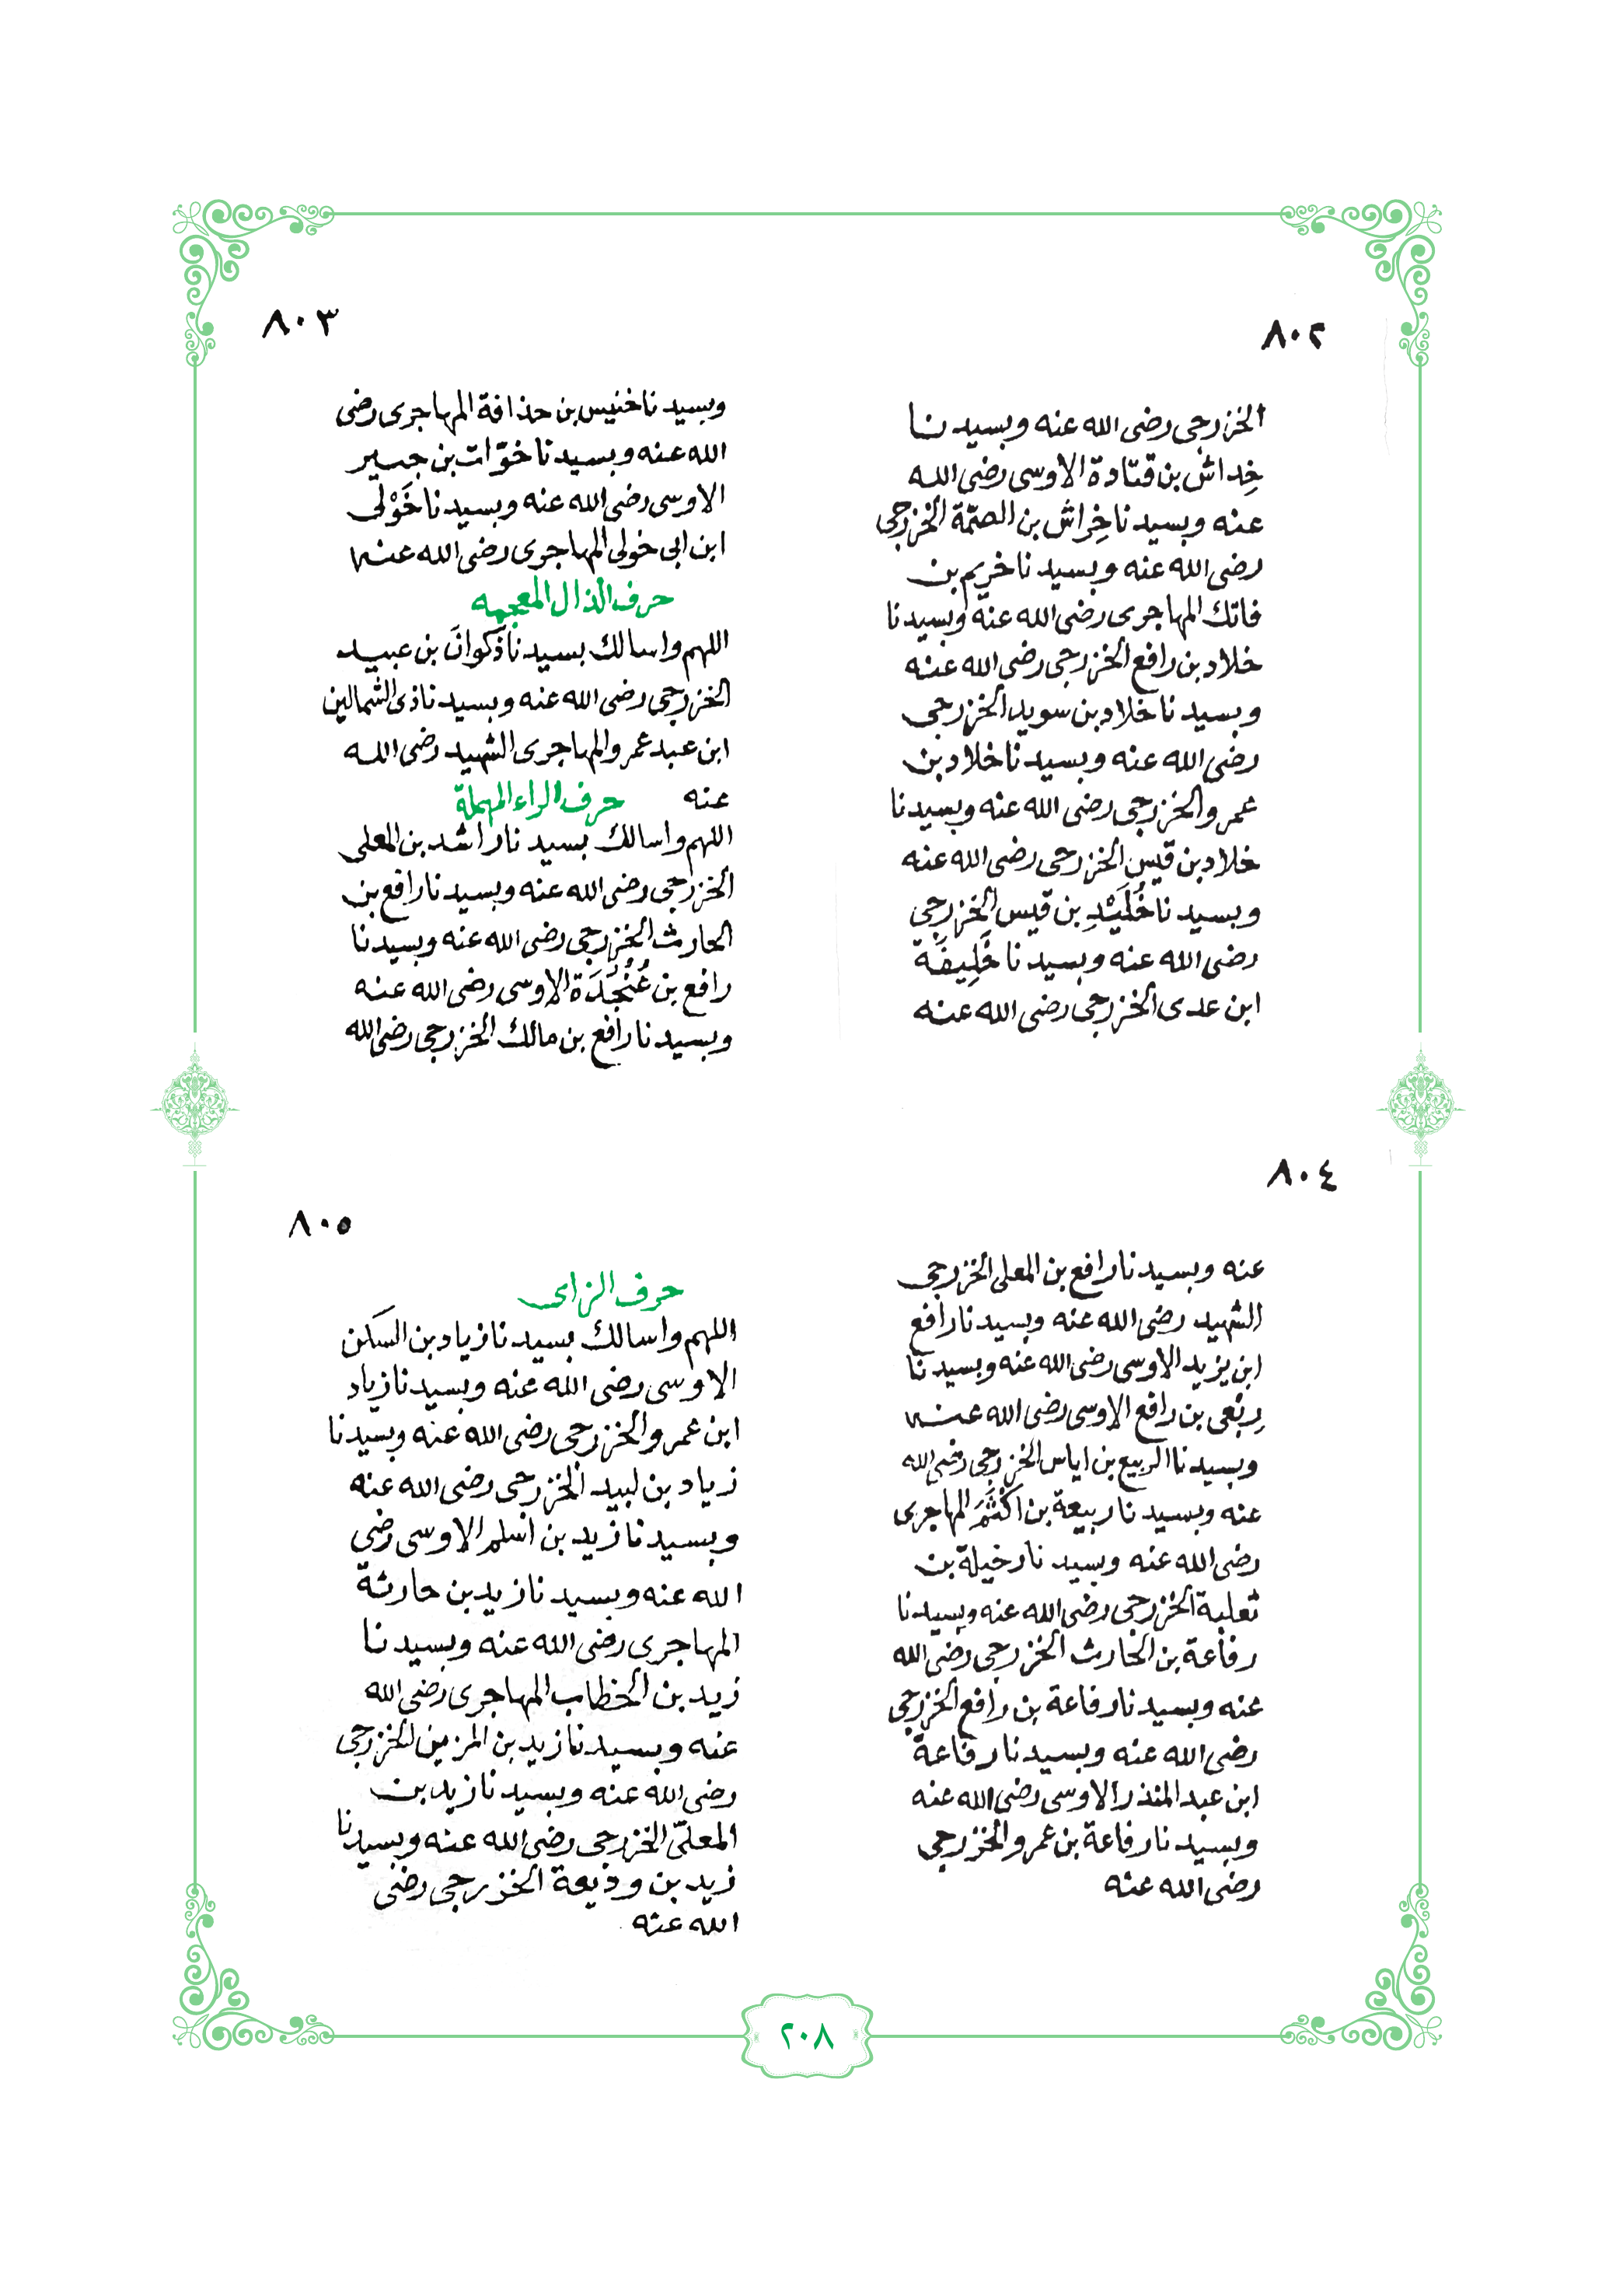 ٨٠٢
الخزرجى رضى الله عنه وبسيدنا
خِداش بن قتادة الاوسى رضى الله
عنه وبسيدنا خِراش بن الصمّة الخزرجى
رضى الله عنه وبسيدنا خريم بن
فاتك المهاجرى رضى الله عنه وبسيدنا
خلاد بن رافع الخزرجى رضى الله عنه
وبسيدنا خلاد بن سويد الخزرجى
رضى الله عنه وبسيدنا خلاد بن
عمرو الخزرجى رضى الله عنه وبسيدنا
خلاد بن قيس الخزرجى رضى الله عنه
وبسيدنا خُلَيْدِ بن قيس الخزرجى
رضى الله عنه وبسيدنا خَلِيفَة
ابن عدى الخزرجى رضى الله عنه
٨٠٣
وبسيدنا خنيس بن حذافة المهاجرى رضى
الله عنه وبسيدنا خوّات بن جبير
الاوسى رضى الله عنه وبسيدنا خَوْلى
ابن ابى خولى المهاجرى رضى الله عنه
حرف الذال المعجمه
اللهم واسالك بسيدنا ذَكوانَ بن عبيد
الخزرجى رضى الله عنه وبسيدنا ذى الشمالين
ابن عبد عمرو المهاجرى الشهيد رضى الله
عنه حرف الراء المهملة
اللهم واسالك بسيدنا راشد بن المعلى
الخزرجى رضى الله عنه وبسيدنا رافع بن
الحارث الخزرجى رضى الله عنه وبسيدنا
رافع بن عُنْجُدَة الاوسى رضى الله عنه
وبسيدنا رافع بن مالك الخزرجى رضى الله
٨٠٤
عنه وبسيدنا رافع بن المعلى الخزرجى
الشهيد رضى الله عنه وبسيدنا رافع
ابن يزيد الاوسى رضى الله عنه وبسيدنا
رِبْعى بن رافع الاوسى رضى الله عنه
وبسيدنا الربيع بن اياس الخزرجى رضى الله
عنه وبسيدنا ربيعة بن اكْثَمَ المهاجرى
رضى الله عنه وبسيدنا رخيلة بن
ثعلبة الخزرجى رضى الله عنه وبسيدنا
رفاعة بن الحارث الخزرجى رضى الله
عنه وبسيدنا رفاعة بن رافع الخزرجى
رضى الله عنه وبسيدنا رفاعة
ابن عبد المنذر الاوسى رضى الله عنه
وبسيدنا رفاعة بن عمرو الخزرجى
رضى الله عنه
٨٠٥
حرف الزاى
اللهم واسالك بسيدنا زياد بن السكن
الاوسى رضى الله عنه وبسيدنا زياد
ابن عمرو الخزرجى رضى الله عنه وبسيدنا
زياد بن لبيد الخزرجى رضى الله عنه
وبسيدنا زيد بن اسلم الاوسى رضى
الله عنه وبسيدنا زيد بن حارثة
المهاجرى رضى الله عنه وبسيدنا
زيد بن الخطاب المهاجرى رضى الله
عنه وبسيدنا زيد بن المزين الخزرجى
رضى الله عنه وبسيدنا زيد بن
المعلىّ الخزرجى رضى الله عنه وبسيدنا
زيد بن وديعة الخزرجى رضى
الله عنه
٢٠٨